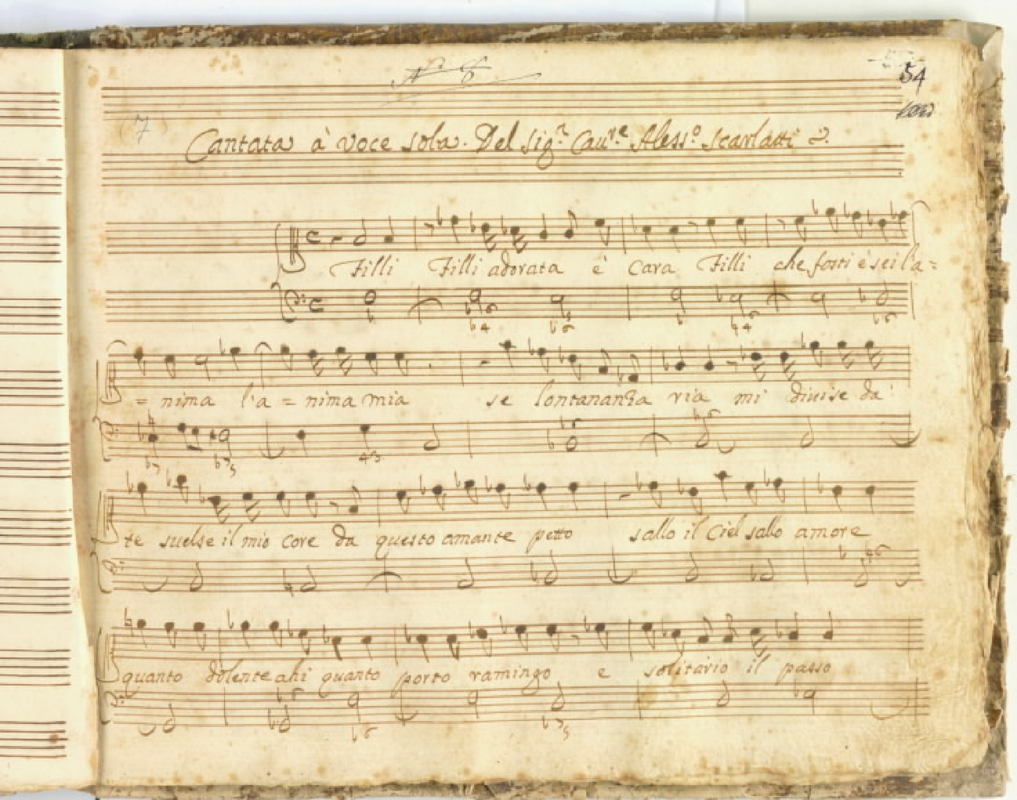 N. 8
54
7
Cantata à Voce sola. Del Sig.r Cau.re Aless.o Scarlatti
Filli Filli adorata è Cara Filli che fosti è sei l'a=
=nima l'a=nima mia se lontananza ria mi diuise da
te suelse il mio core da questo amante petto sallo il Ciel sallo amore
quanto dolente ahi quanto porto ramingo e solitario il passo